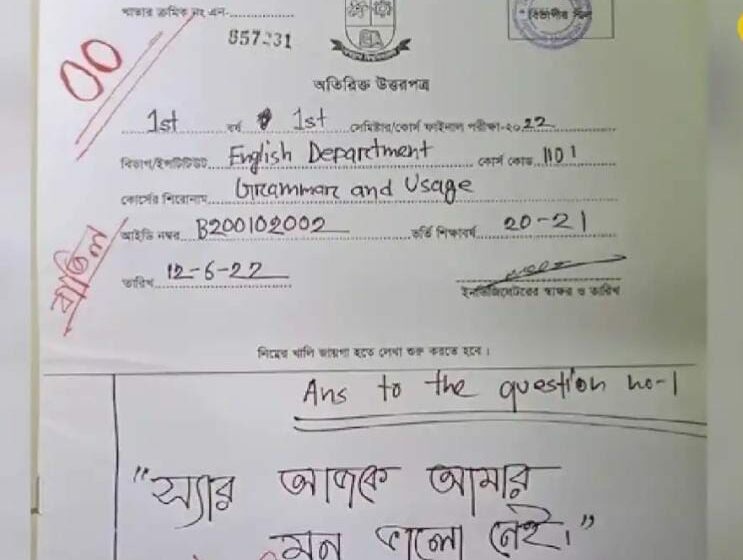 খাতার ক্রমিক নং এন-
857231
বিভাগীয় সিল
00
অতিরিক্ত উত্তরপত্র
1st বর্ষ 1st সেমিস্টার/কোর্স ফাইনাল পরীক্ষা-২০22
বিভাগ/ইন্সটিটিউট English Department কোর্স কোড 1101
কোর্সের শিরোনাম Grammar and Usage
আইডি নম্বর B200102002 ভর্তি শিক্ষাবর্ষ 20-21
বাতিল
তারিখ 12-6-22
ইনভিজিলেটরের স্বাক্ষর ও তারিখ
নিম্নের খালি জায়গা হতে লেখা শুরু করতে হবে।
Ans to the question no-1
"স্যার আজকে আমার
মন ভালো নেই।"